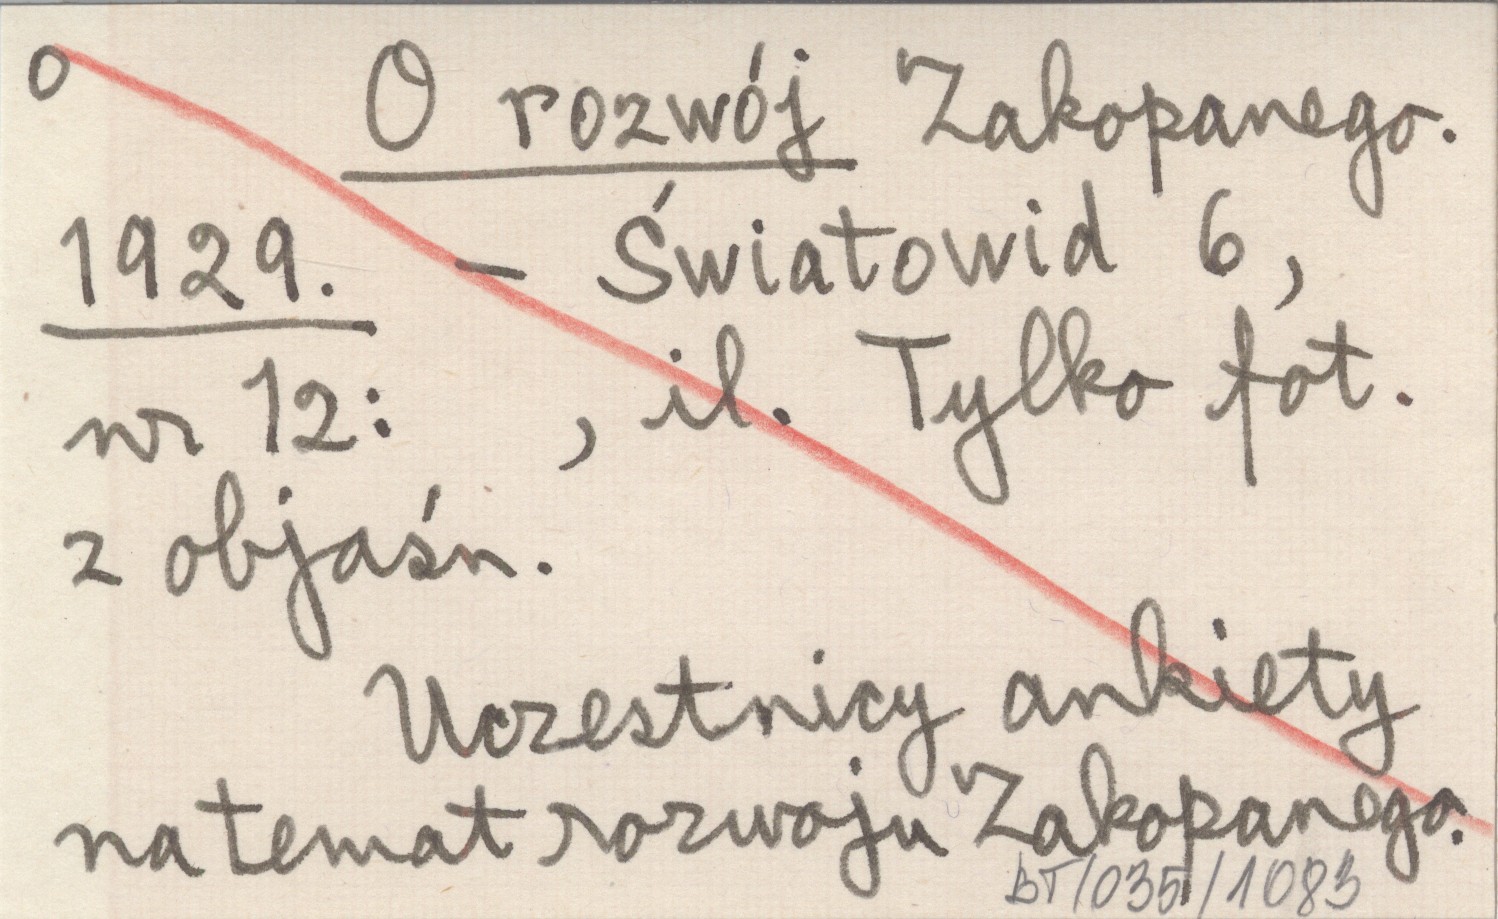 o O rozwój Zakopanego.
1929. – Światowid 6,
nr 12: , il. Tylko fot.
z objaśn.
Uczestnicy ankiety
na temat rozwoju Zakopanego.
BT/035/1083